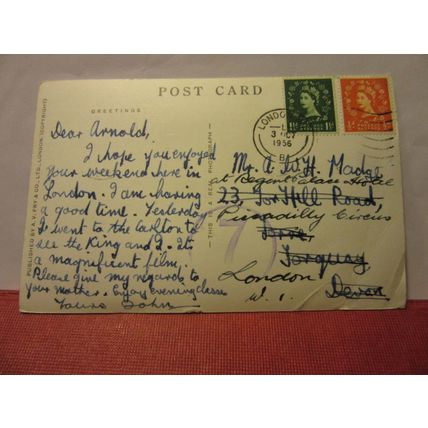 POST CARD
GREETINGS
Dear Arnold,
I hope you enjoyed
your weekend here in
London. I am having
a good time. Yesterday
I went to the Carlton to
see the King and I. Its
a magnificent film.
Please give my regards to
your mother. Enjoy evening classes
Yours John
PUBLISHED BY A. V. FRY & CO., LTD., LONDON (COPYRIGHT)
THIS IS A REAL PHOTOGRAPH
LONDON
3 OCT
1956
1½ 1½
Mr. A. W. H. Madge
at Regent Palace Hotel
23, Tor Hill Road,
Piccadilly Circus
Torquay
London
W. 1.
Devon